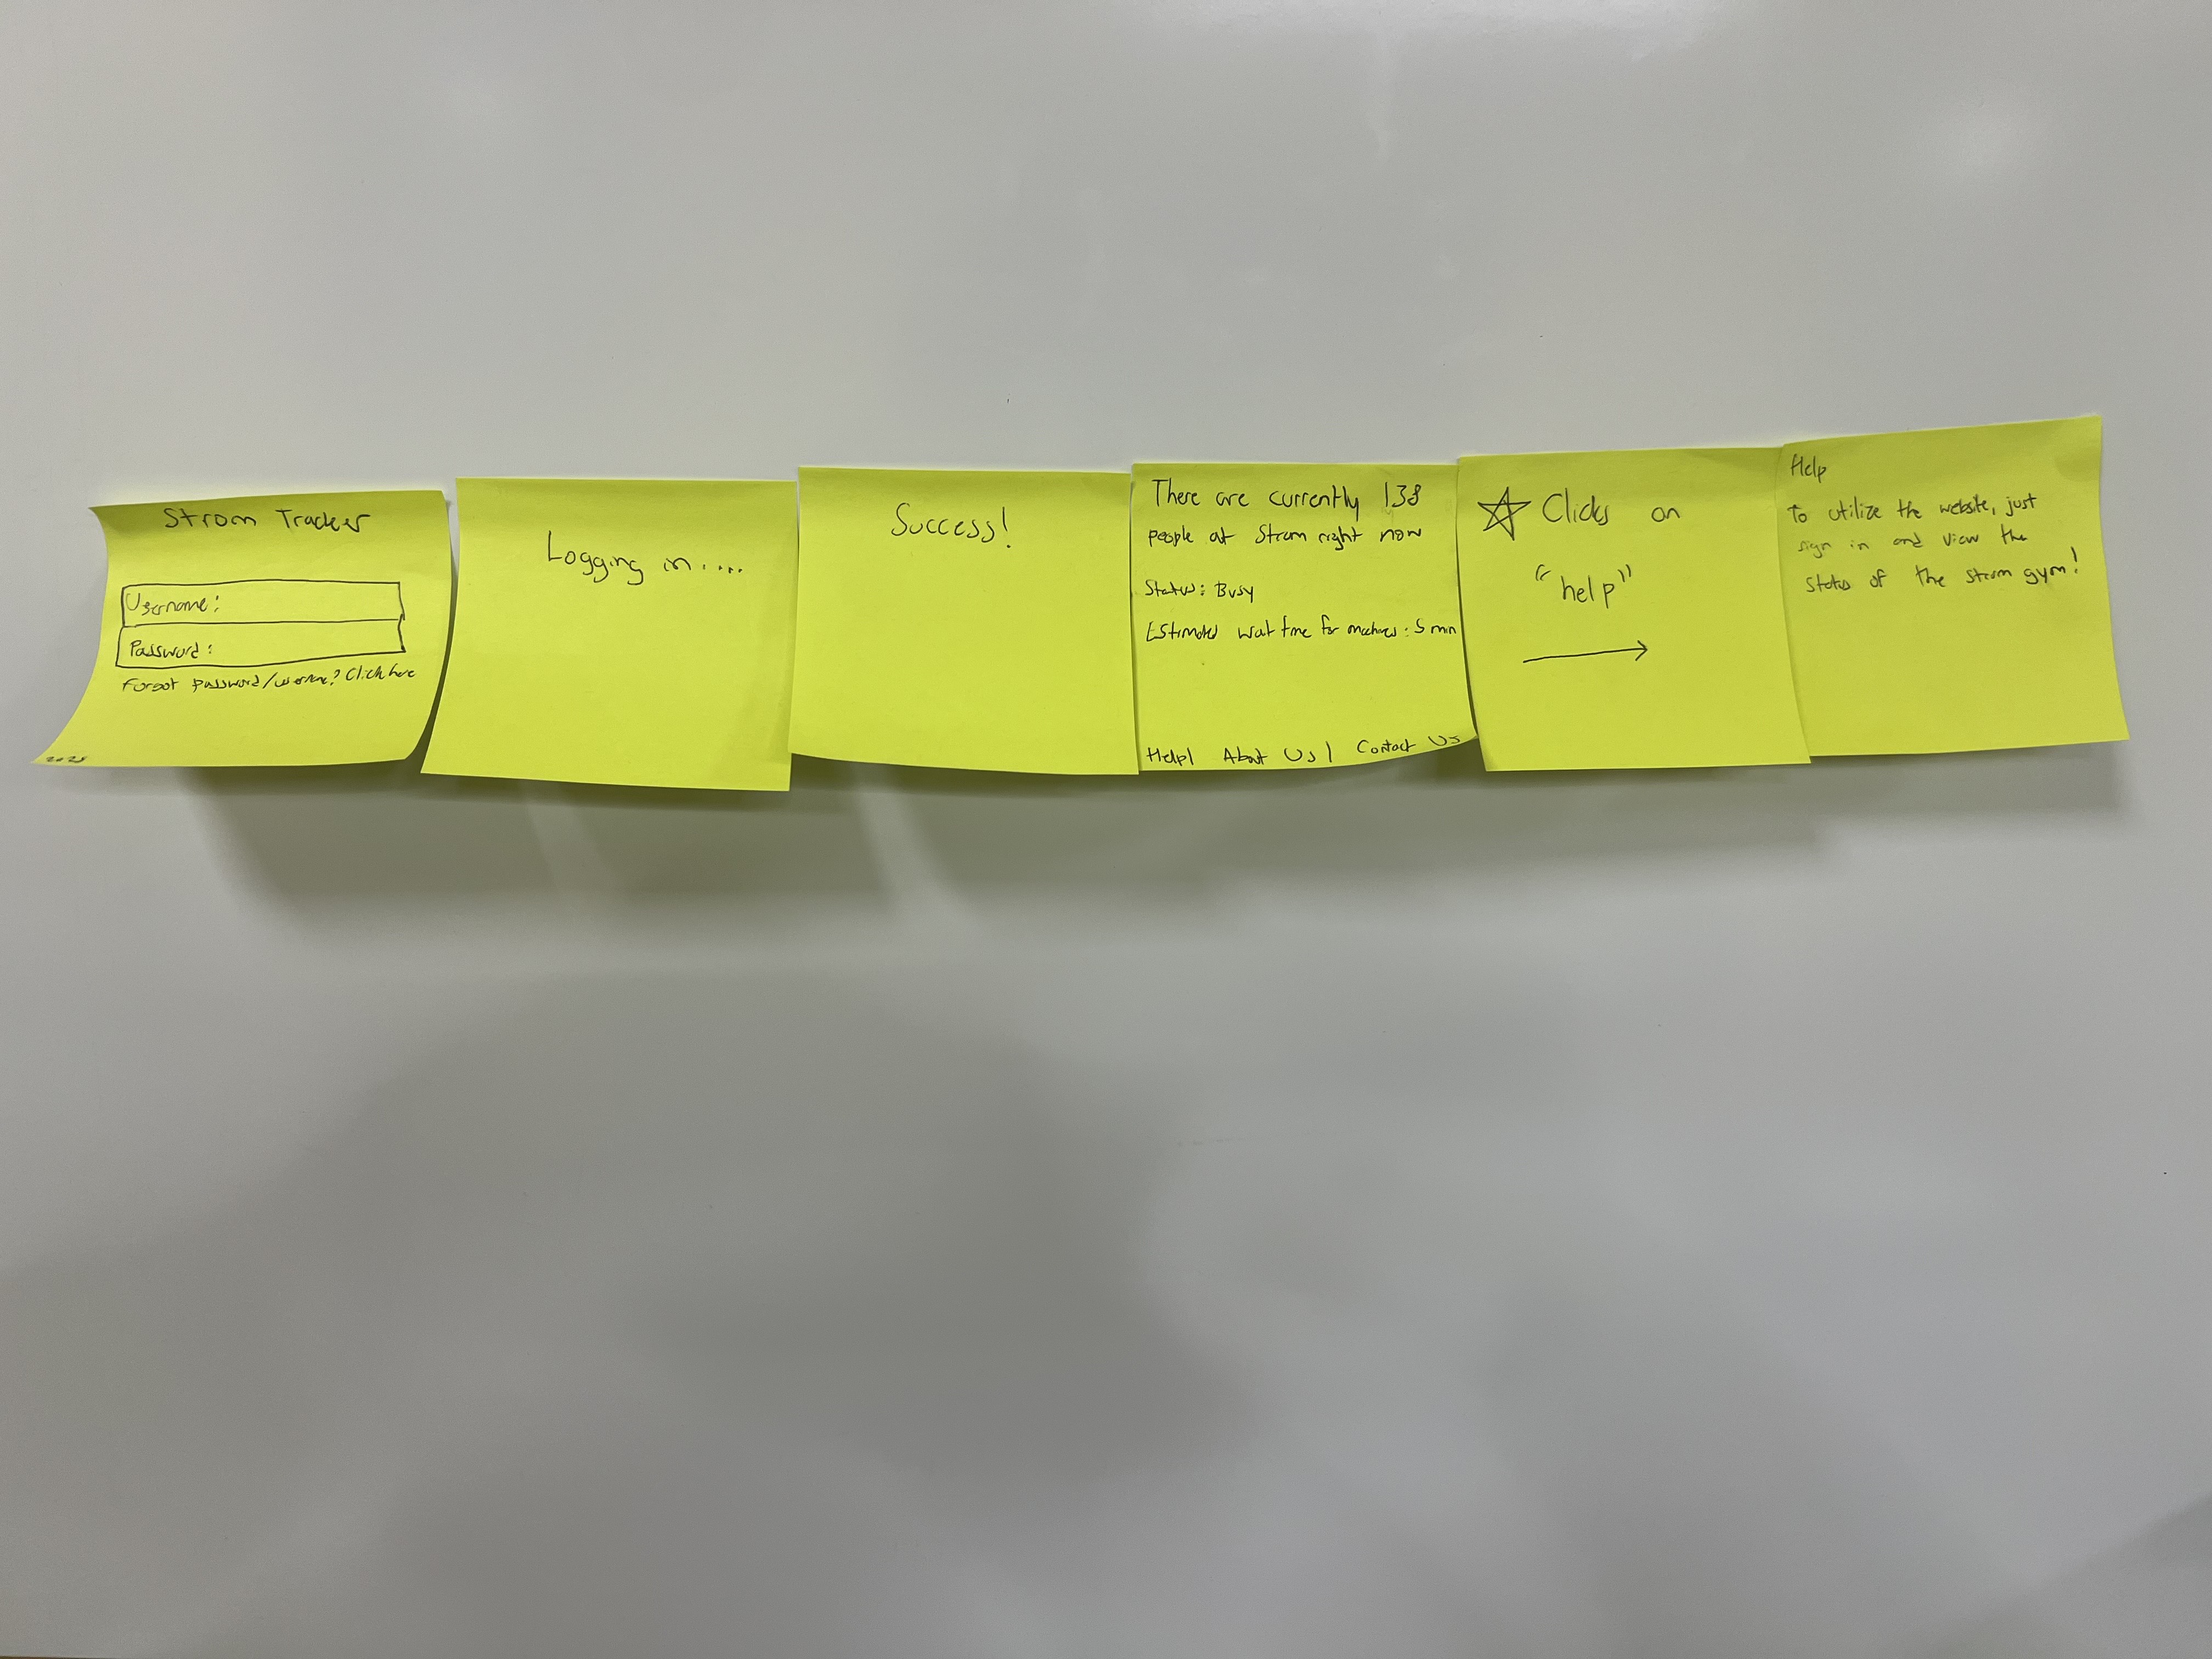 Strom Tracker
Username:
Password:
Forgot password/username? Click here
2025
Logging in....
Success!
There are currently 138
people at Strom right now
Status: Busy
Estimated wait time for machines: 5 min
Help| About Us| Contact Us
Clicks on
"help"
Help
To utilize the website, just
sign in and view the
status of the strom gym!